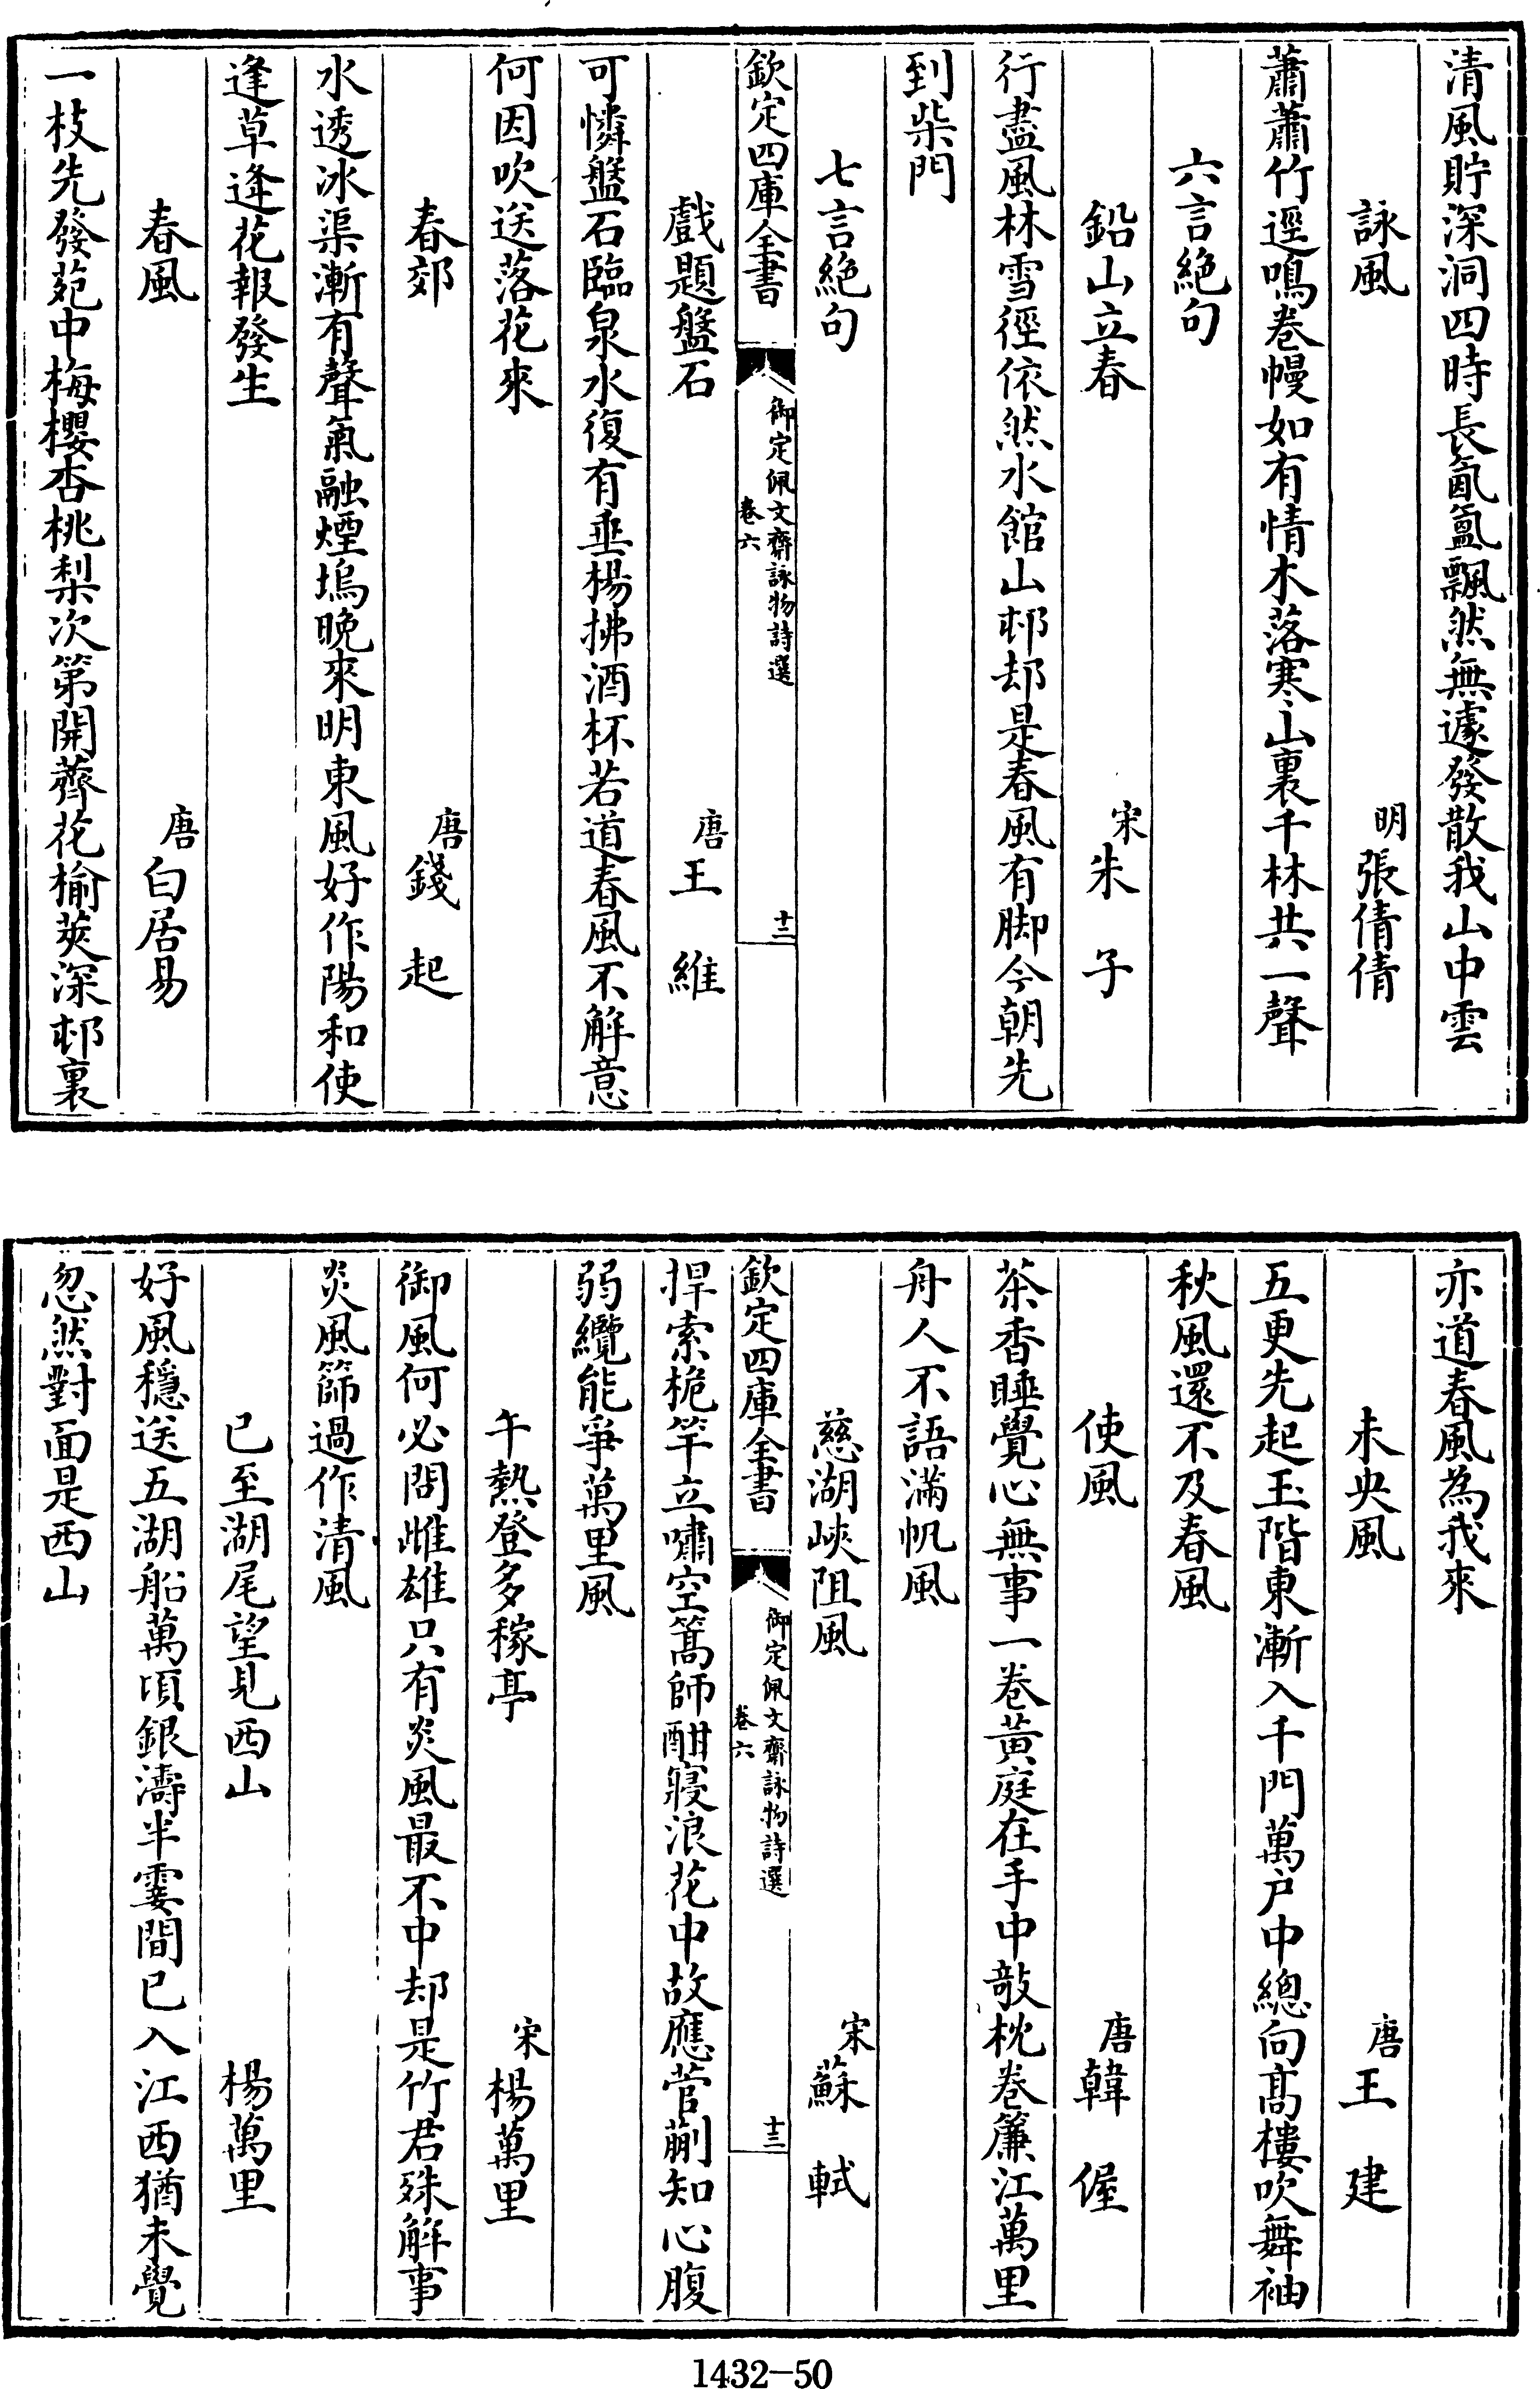 清風貯深洞四時長氤氳飄然無遽發散我山中雲
詠風　明張倩倩
蕭蕭竹逕鳴卷幔如有情木落寒山裏千林共一聲
六言絶句
鉛山立春　宋朱子
行盡風林雪徑依然水館山邨却是春風有脚今朝先
到柴門
七言絶句
欽定四庫全書　御定佩文齋詠物詩選　卷六　十二
戲題盤石　唐王維
可憐盤石臨泉水復有垂楊拂酒杯若道春風不解意
何因吹送落花來
春郊　唐錢起
水透冰渠漸有聲氣融煙塢晚來明東風好作陽和使
逢草逢花報發生
春風　唐白居易
一枝先發苑中梅櫻杏桃梨次第開薺花榆莢深邨裏
亦道春風為我來
未央風　唐王建
五更先起玉階東漸入千門萬户中總向髙樓吹舞袖
秋風還不及春風
使風　唐韓偓
茶香睡覺心無事一卷黃庭在手中敧枕卷簾江萬里
舟人不語滿帆風
慈湖峽阻風　宋蘇軾
欽定四庫全書　御定佩文齋詠物詩選　卷六　十三
捍索桅竿立嘯空篙師酣寢浪花中故應菅蒯知心腹
弱纜能爭萬里風
午熱登多稼亭　宋楊萬里
御風何必問雌雄只有炎風最不中却是竹君殊解事
炎風篩過作清風
已至湖尾望見西山　楊萬里
好風穩送五湖船萬頃銀濤半霎間已入江西猶未覺
忽然對面是西山
1432-50